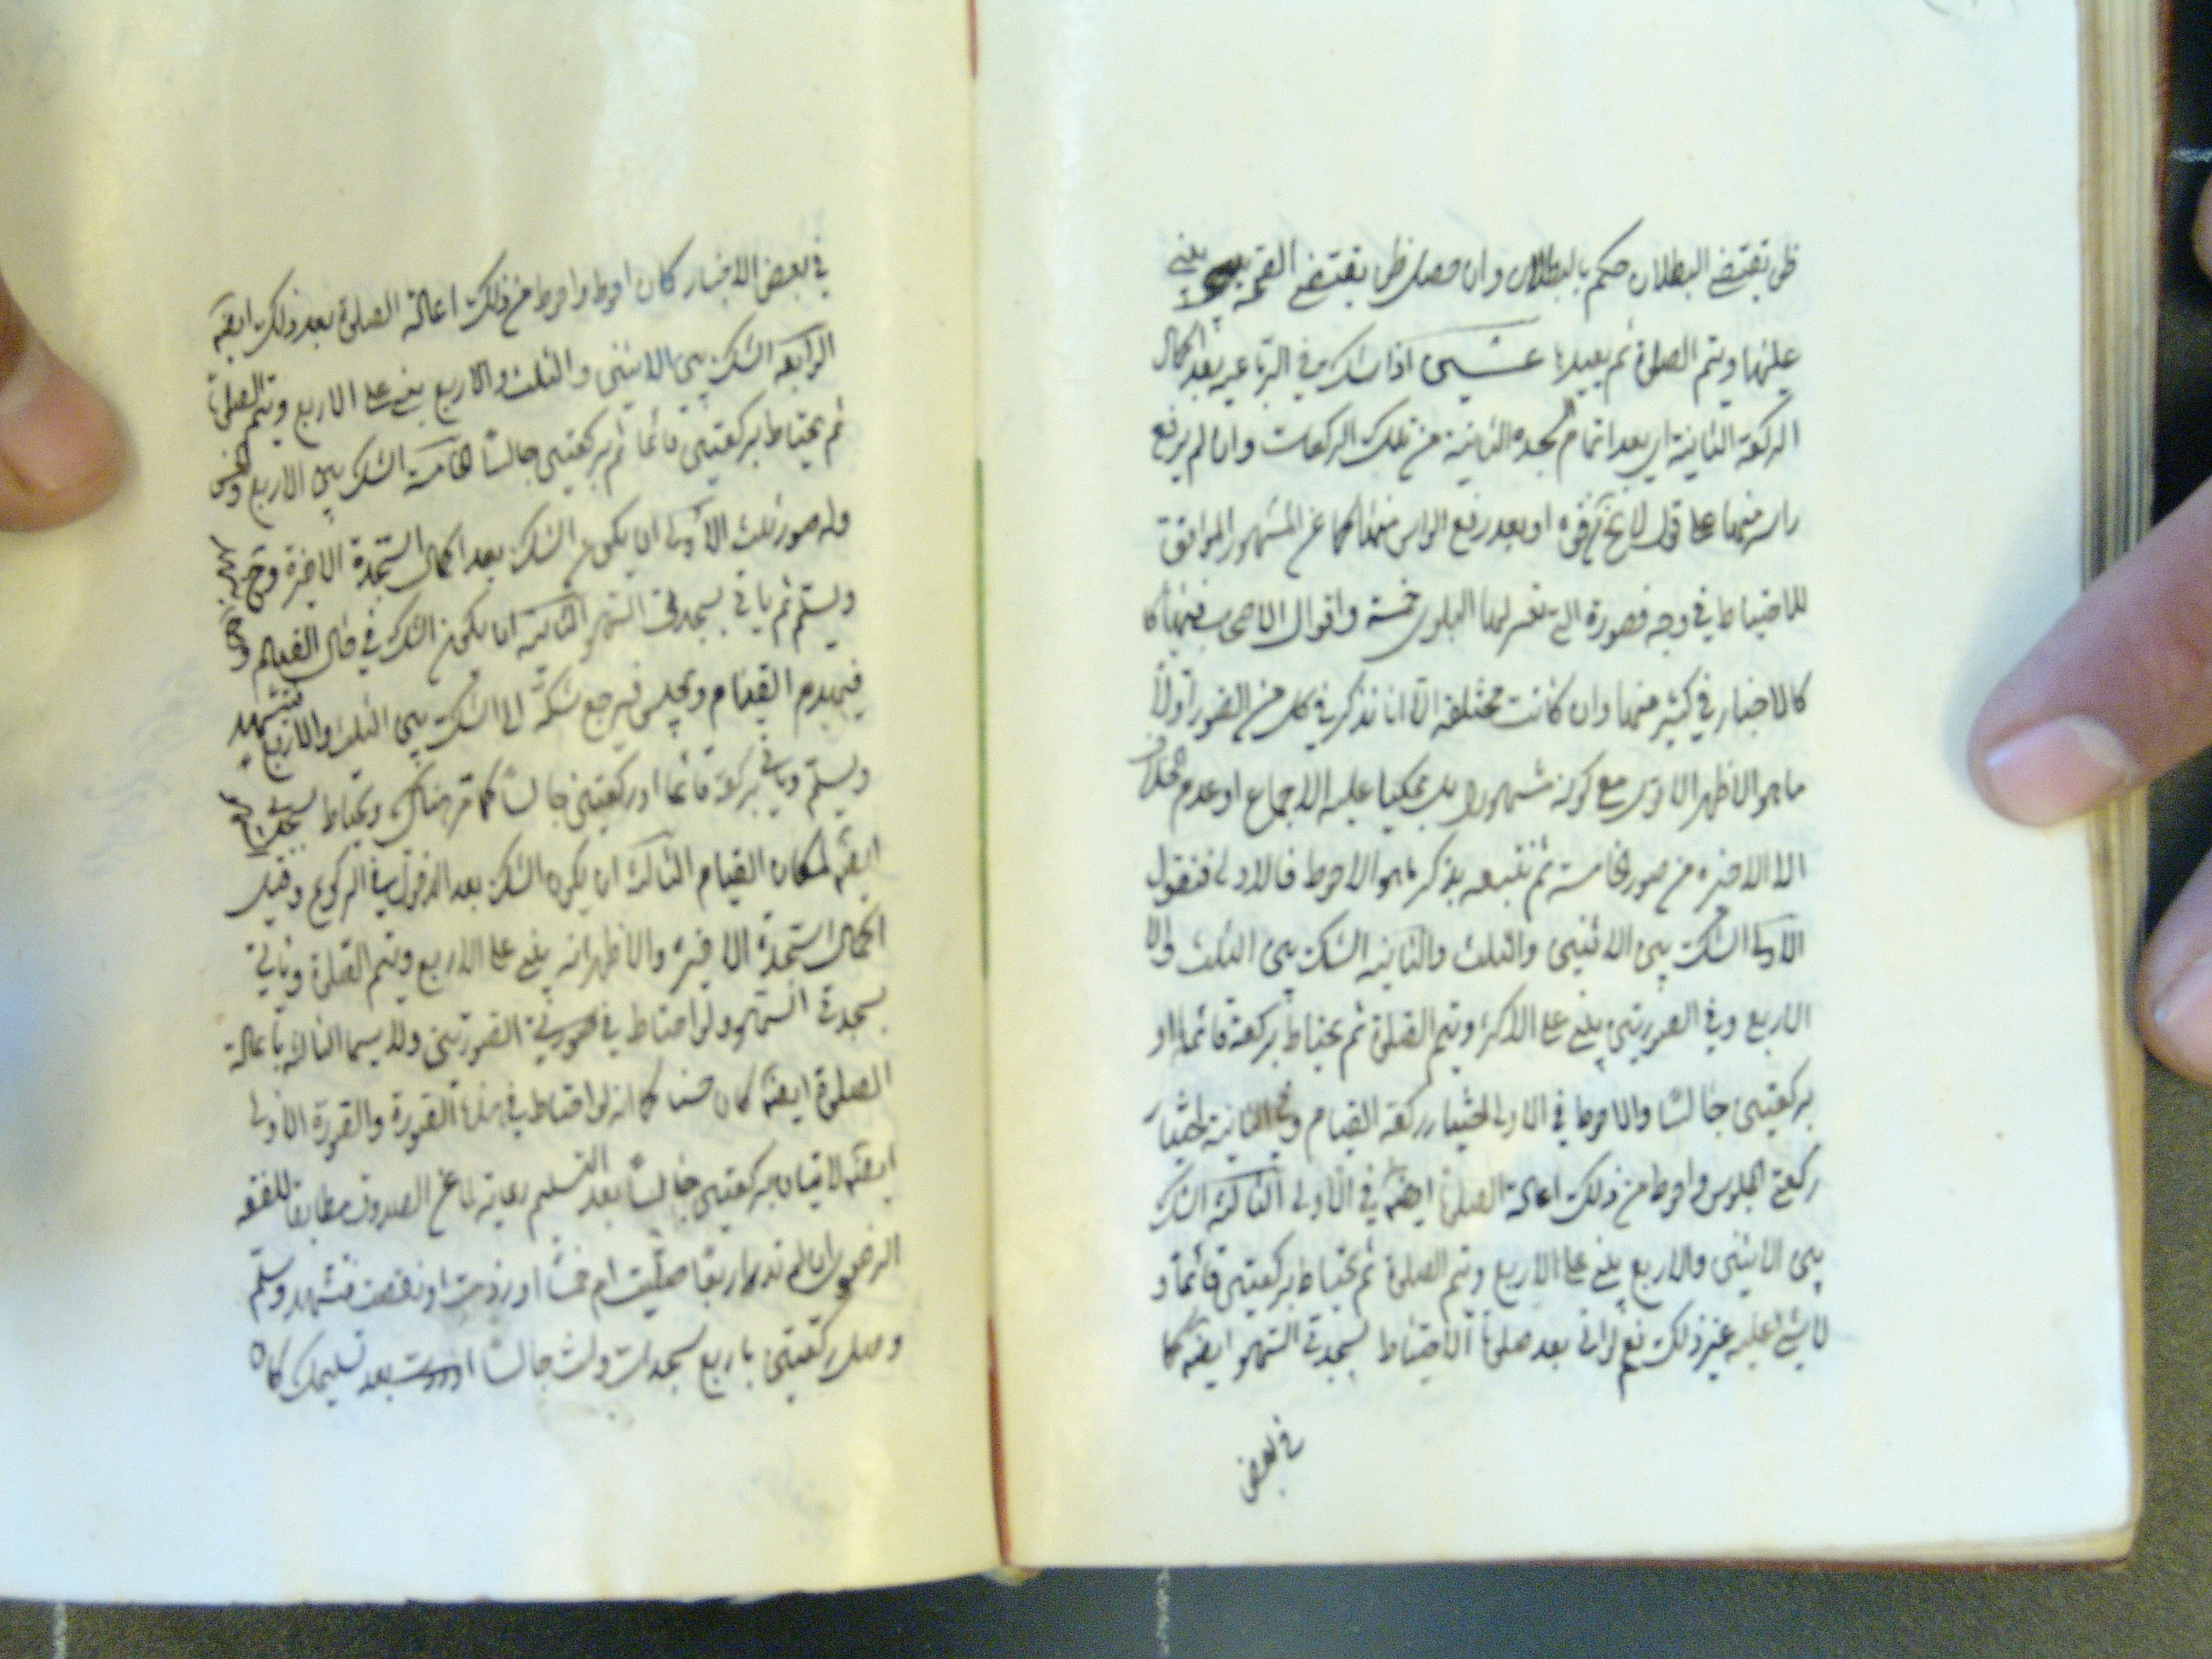 ظن يقتضي البطلان حكم بالبطلان وان حصل ظن يقتضي الصحة يبني
عليها ويتم الصلوة ثم يعيدها اذا شك في الرباعيه بعد اكمال
الركعة الثانية اي بعد اتمام السجده الثانية من تلك الركعات وان لم يرفع
راسه منها على قول لا يخ من قوه او بعد رفع الراس منها كما عن المشهور الموافق
للاحتياط في وجه فصورة التي تعم لها البلوى خمسة واقوال الاصحاب فيها كا
كالاخبار في كثير منها وان كانت مختلفة الا انا نذكر في كل من الصور اولا
ما هو الاظهر الاقوى مع كونه مشهورا بل محكيا عليه الاجماع او عدم الخلاف
الا الاخيره من صور الخامسة ثم نتبعه بذكر ما هو الاحوط فالاولى فنقول
الاولى الشك بين الاثنين والثلث والثانيه الشك بين الثلث والا
الاربع وفي الصورتين يبني على الاكثر ويتم الصلوة ثم يحتاط بركعة قائما او
بركعتين جالسا والاحوط في الاولى اختيار ركعة القيام وفي الثانية اختيار
ركعتي الجلوس واحوط من ذلك اعادة الصلوة ايضا في الاولى الثالثة الشك
بين الاثنين والاربع يبني على الاربع ويتم الصلوة ثم يحتاط بركعتين قائما و
لا شيئ عليه غير ذلك نعم لو اتى بعد صلوة الاحتياط بسجدتي السهو ايضا كما
في بعض
في بعض الاخبار كان احوط واحوط من ذلك اعادة الصلوة بعد ذلك ايضا
الرابعه الشك بين الاثنين والثلث والاربع يبني على الاربع ويتم الصلوة
ثم يحتاط بركعتين قائما ثم بركعتين جالسا الخامسة الشك بين الاربع والخمس
وله صور ثلث الاولى ان يكون الشك بعد اكمال السجدة الاخيرة وح يتشهد
ويسلم ثم ياتي بسجدتي السهو الثانية ان يكون الشك في حال القيام وح
فيهدم القيام ويجلس فيرجع شكه الى الشك بين الثلث والاربع فيتشهد
ويسلم وياتي بركعة قائما او ركعتين جالسا كما مر هناك ويحتاط بسجدتي السهو
ايضا لمكان القيام الثالثة ان يكون الشك بعد الدخول في الركوع وقبل
اكمال السجدة الاخيرة والاظهر انه يبني على الاربع ويتم الصلوة وياتي
بسجدتي السهو ولو احتاط في الصورتين ولا سيما الثالثة باعادة
الصلوة ايضا كان حسنا كما انه لو احتاط في هذه الصورة والصورة الاولى
ايضا لاتيان بركعتين جالسا بعد التسليم رعاية لما عن الصدوق مطابقا للفقه
الرضوي ان لم تدر اربعا صليت ام خمسا او زدت او نقصت فتشهد وسلم
وصل ركعتين باربع سجدات وانت جالسا بعد تسليمك كان